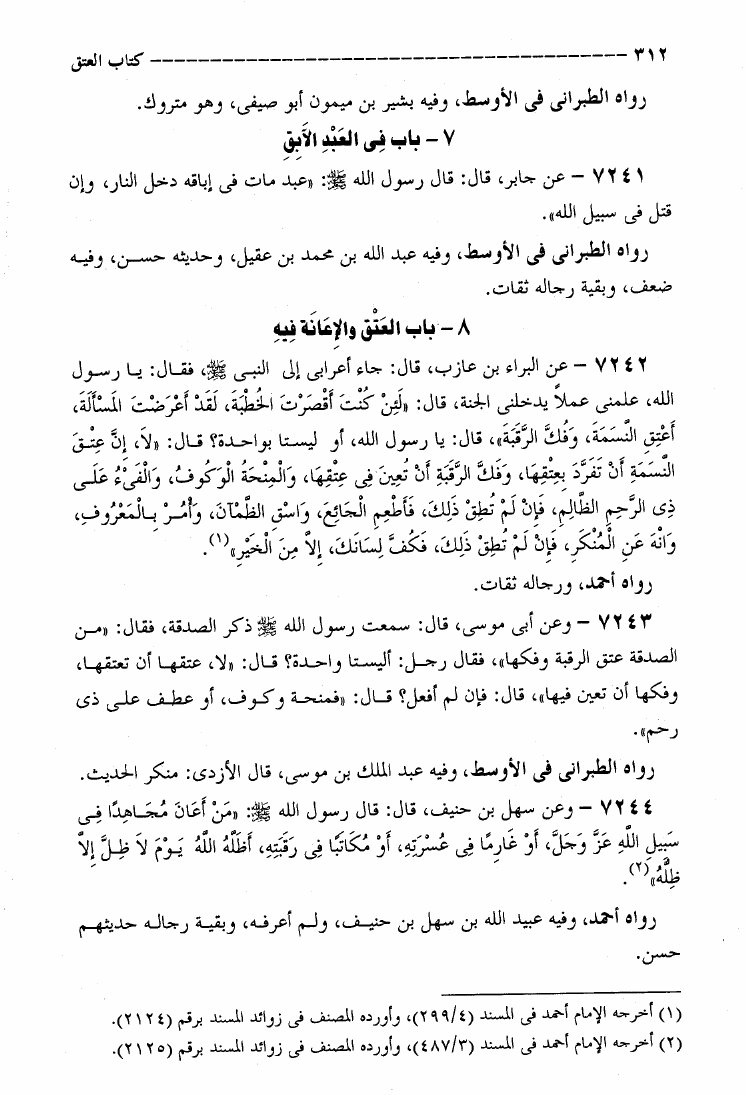 ٣١٢ ------------------------------------------ كتاب العتق
رواه الطبرانى فى الأوسط، وفيه بشير بن ميمون أبو صيفى، وهو متروك.
٧ - باب فِى العَبْدِ الآبِقِ
٧٢٤١ - عن جابر، قال: قال رسول الله ﷺ: «عبد مات فى إباقه دخل النار، وإن
قتل فى سبيل الله».
رواه الطبرانى فى الأوسط، وفيه عبد الله بن محمد بن عقيل، وحديثه حسن، وفيه
ضعف، وبقية رجاله ثقات.
٨ - باب العَتْقِ والإِعَانَة فِيهِ
٧٢٤٢ - عن البراء بن عازب، قال: جاء أعرابى إلى النبى ﷺ، فقال: يا رسول
الله، علمنى عملاً يدخلنى الجنة، قال: «لَئِنْ كُنْتَ أَقْصَرْتَ الخُطْبَةَ، لَقَدْ أَعْرَضْتَ المَسْأَلَةَ،
أَعْتِقِ النَّسَمَةَ، وَفُكَّ الرَّقَبَةَ»، قال: يا رسول الله، أو ليستا بواحدة؟ قال: «لاَ، إِنَّ عِتْقَ
النَّسَمَةِ أَنْ تَفَرَّدَ بِعِتْقِهَا، وَفَكَّ الرَّقَبَةِ أَنْ تُعِينَ فِى عِتْقِهَا، وَالْمِنْحَةُ الْوَكُوفُ، وَالْفَىْءُ عَلَى
ذِى الرَّحِمِ الظَّالِمِ، فَإِنْ لَمْ تُطِقْ ذَلِكَ، فَأَطْعِمِ الْجَائِعَ، وَاسْقِ الظَّمْآنَ، وَأْمُرْ بِالْمَعْرُوفِ،
وَانْهَ عَنِ الْمُنْكَرِ، فَإِنْ لَمْ تُطِقْ ذَلِكَ، فَكُفَّ لِسَانَكَ، إِلاَّ مِنَ الْخَيْرِ»(١).
رواه أحمد، ورجاله ثقات.
٧٢٤٣ - وعن أبى موسى، قال: سمعت رسول الله ﷺ ذكر الصدقة، فقال: «من
الصدقة عتق الرقبة وفكها»، فقال رجل: أليستا واحدة؟ قال: «لا، عتقها أن تعتقها،
وفكها أن تعين فيها»، قال: فإن لم أفعل؟ قال: «فمنحة وكوف، أو عطف على ذى
رحم».
رواه الطبرانى فى الأوسط، وفيه عبد الملك بن موسى، قال الأزدى: منكر الحديث.
٧٢٤٤ - وعن سهل بن حنيف، قال: قال رسول الله ﷺ: «مَنْ أَعَانَ مُجَاهِدًا فِى
سَبِيلِ اللَّهِ عَزَّ وَجَلَّ، أَوْ غَارِمًا فِى عُسْرَتِهِ، أَوْ مُكَاتَبًا فِى رَقَبَتِهِ، أَظَلَّهُ اللَّهُ يَوْمَ لاَ ظِلَّ إِلاَّ
ظِلُّهُ»(٢).
رواه أحمد، وفيه عبيد الله بن سهل بن حنيف، ولم أعرفه، وبقية رجاله حديثهم
حسن.
(١) أخرجه الإمام أحمد فى المسند (٢٩٩/٤)، وأورده المصنف فى زوائد المسند برقم (٢١٢٤).
(٢) أخرجه الإمام أحمد فى المسند (٤٨٧/٣)، وأورده المصنف فى زوائد المسند برقم (٢١٢٥).